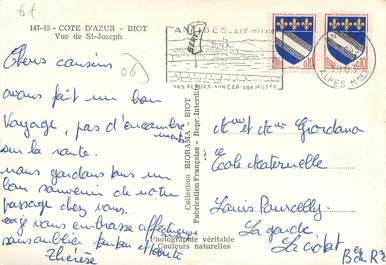 6f
147-49 - COTE D'AZUR - BIOT
Vue de St-Joseph
06
Chers cousins
avons fait un bon
voyage, pas d'encombrements
sur la route.
nous gardons tous un
bon souvenir de notre
passage chez vous.
vous embrasse affectueusement
sans oublier
Thérèse
Collection BIORAMA - BIOT
Fabrication Française - Repr. Interdite
Photographie véritable
Couleurs naturelles
ANTIBES - ÉTÉ-HIVER
SES FLEURS-SON CAP-SON MUSÉE
0,10
0,10
ALPES MMES
Mr et Mme Giordana
Ecole Maternelle
Louis Pourcelly
La garde
La Ciotat
B du R